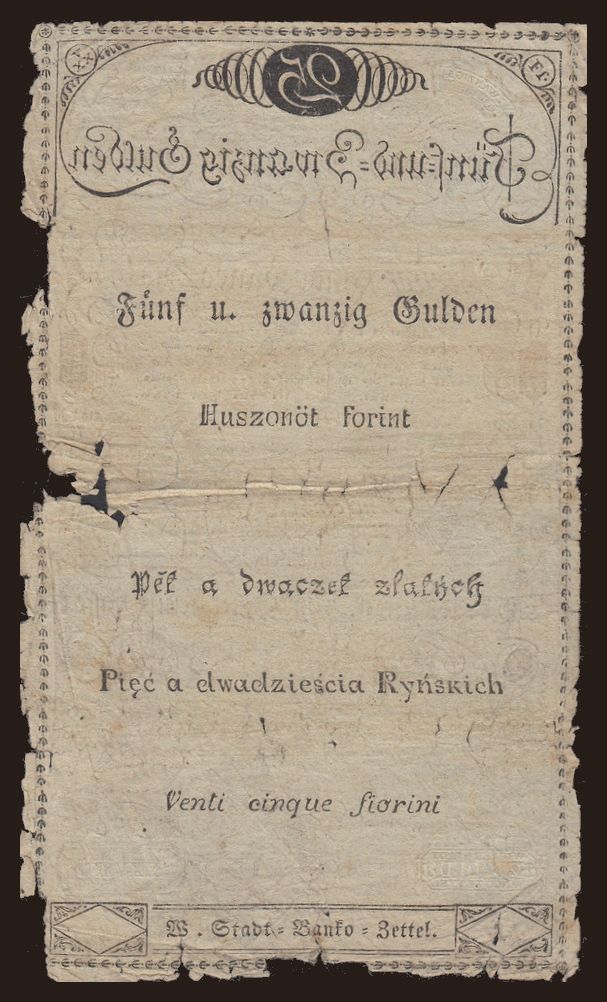 XX Fr.
25
Fünf-und-Zwanzig Gulden
Fünf u. zwanzig Gulden
Huszonöt forint
Pět a dwaczet zlatých
Pięć a dwadzieścia Ryńskich
Venti cinque fiorini
W. Stadt-Banko-Zettel.